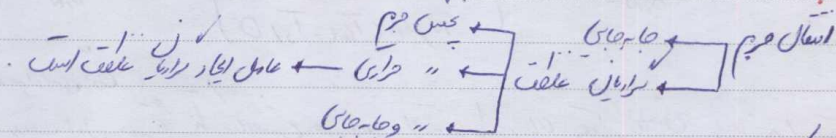 انتقال جرم
جابه جایی
گرادیان غلظت
پخش جرم
〃 حرارتی ← عامل ایجاد گرادیان غلظت است.
〃 و جابه جایی